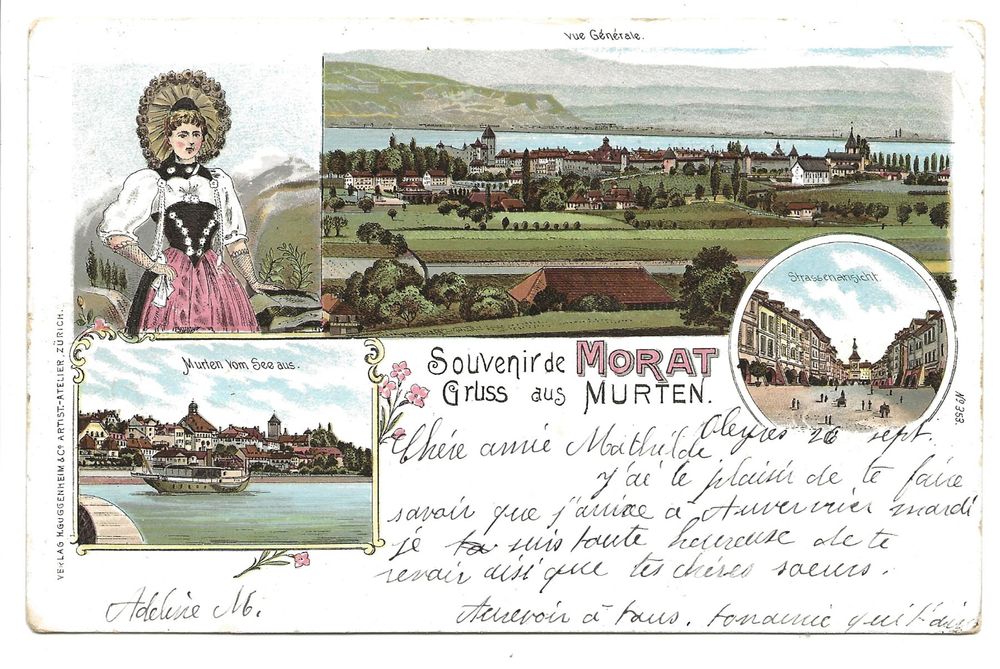 Vue Générale.
Strassenansicht
Murten vom See aus.
Souvenir de MORAT
Gruss aus MURTEN.
No 353.
VERLAG H. GUGGENHEIM & Co ARTIST.-ATELIER, ZÜRICH.
Oleyres 26 sept.
Chère amie Mathilde
J'ai le plaisir de te faire
savoir que j'arrive a Auvernier mardi
je suis toute heureuse de te
revoir aisi que tes chères soeurs.
Aurevoir à tous. ton amie qui t'aime
Adeline M.